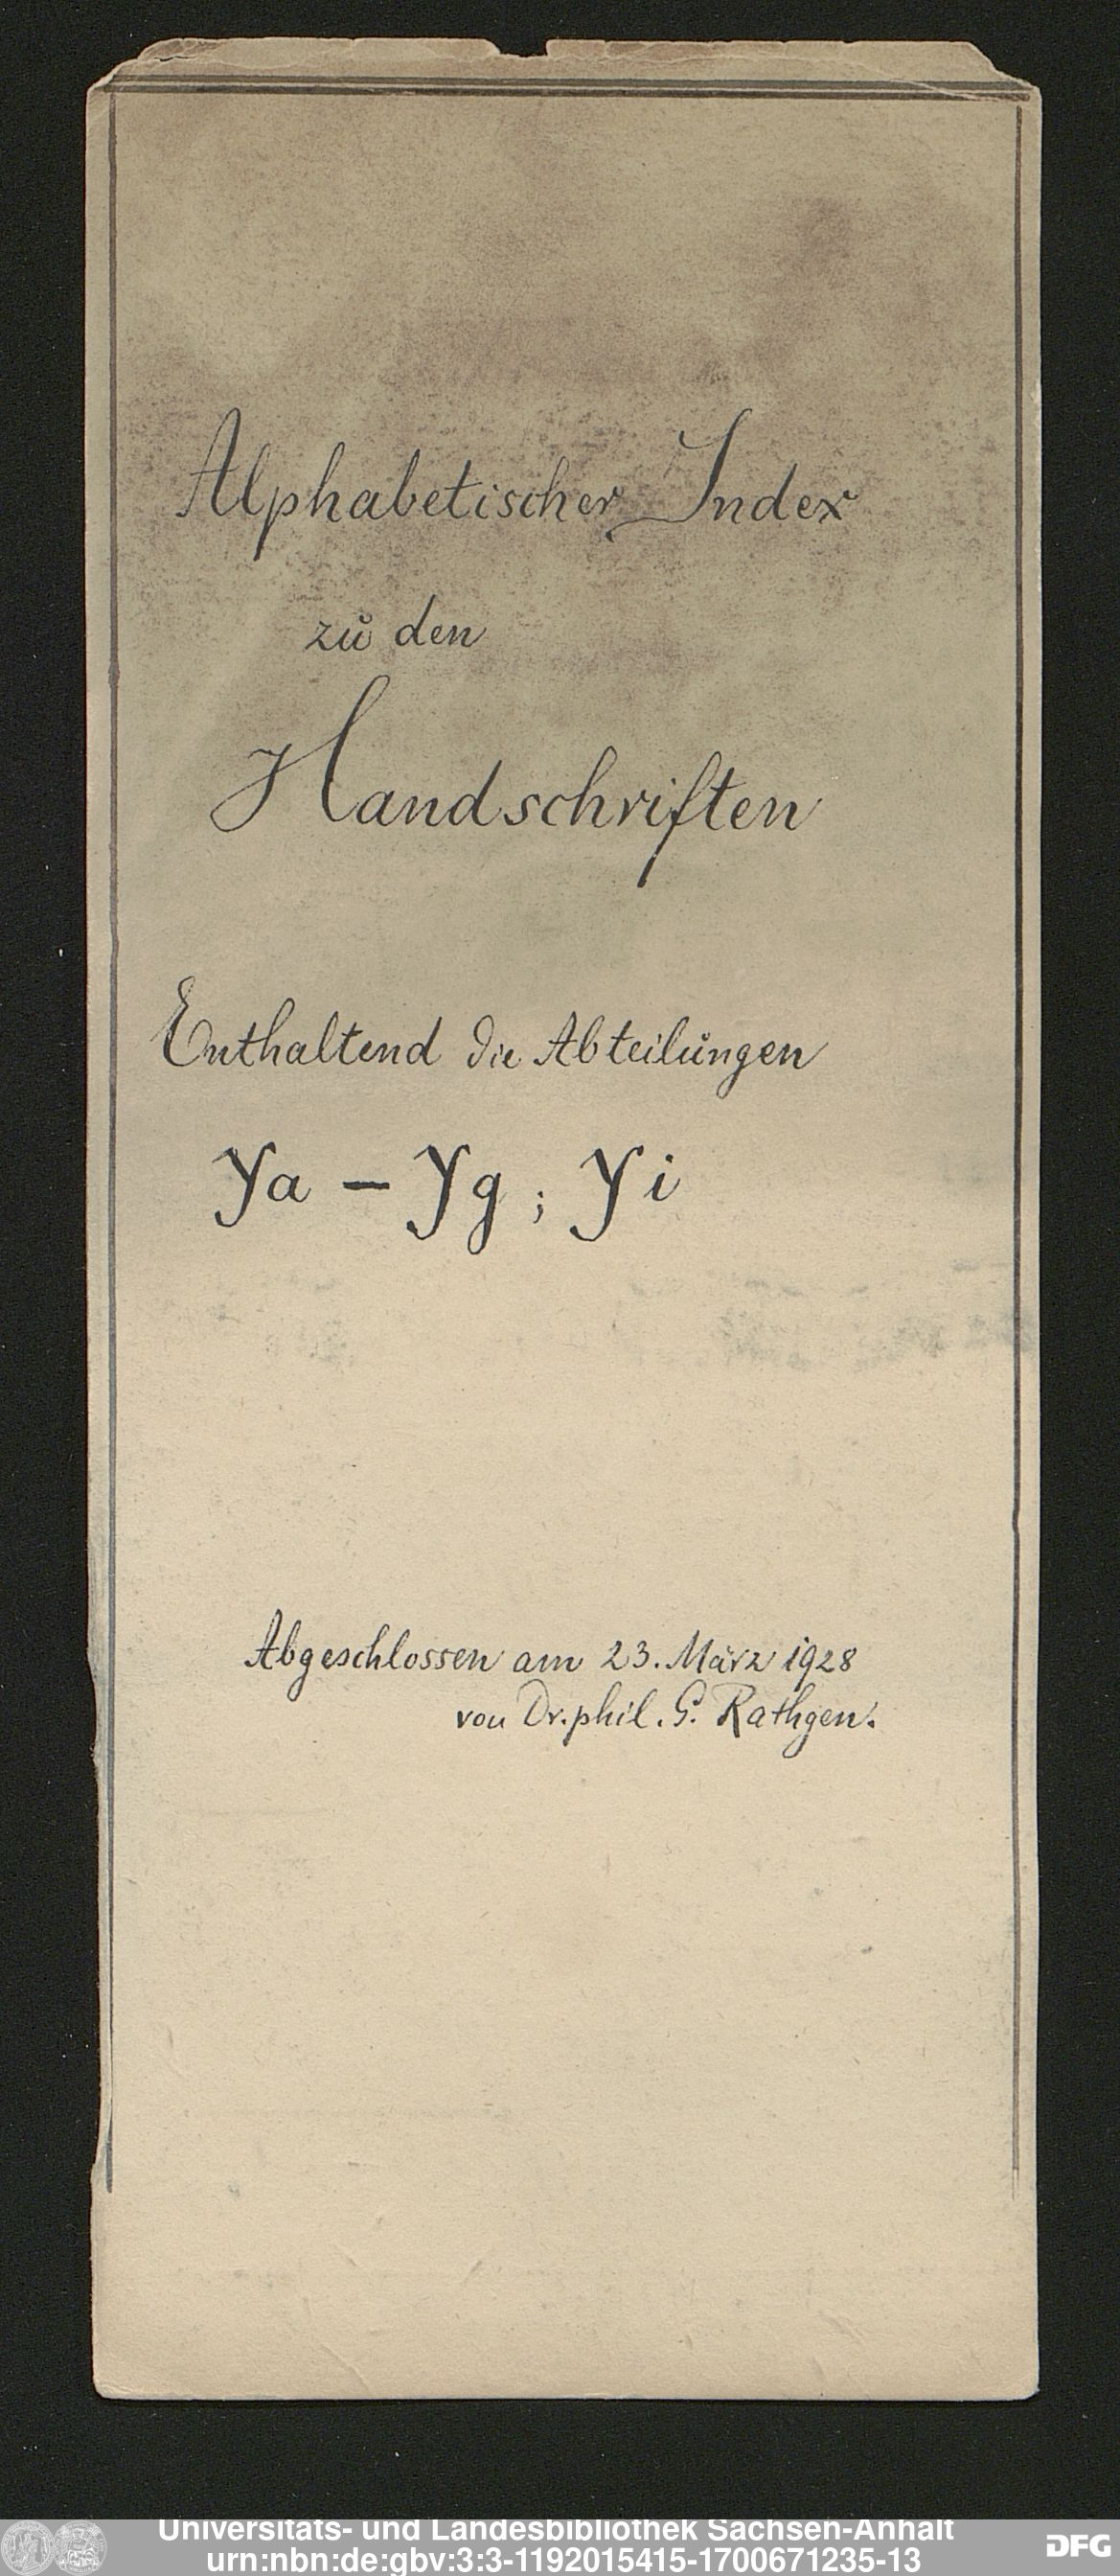 Alphabetischer Index
zu den
Handschriften
Enthaltend die Abteilungen
Ya – Yg ; Yi
Abgeschlossen am 23. März 1928
von Dr. phil. G. Rathgen.
Universitäts- und Landesbibliothek Sachsen-Anhalt
urn:nbn:de:gbv:3:3-1192015415-1700671235-13
DFG